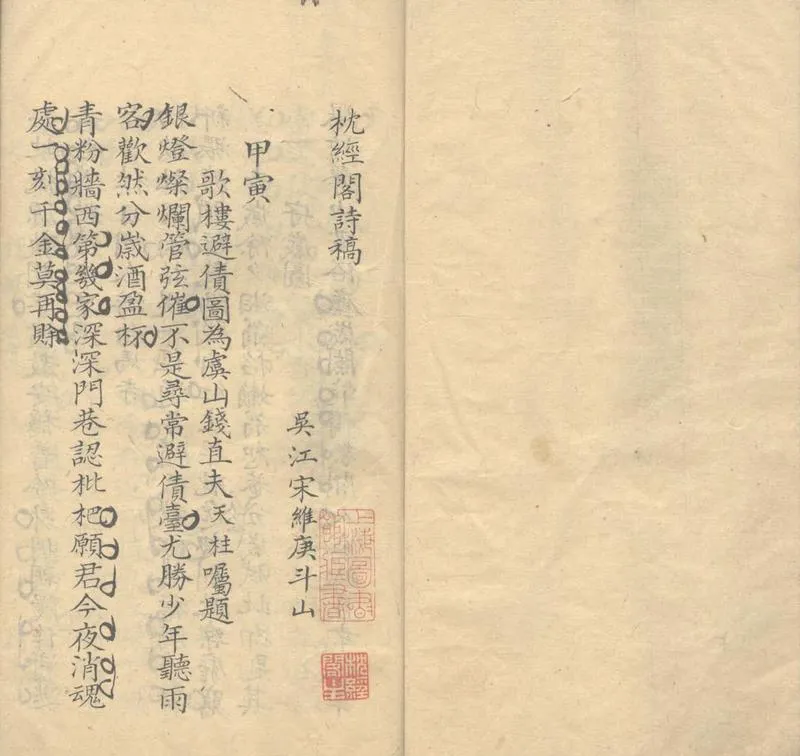 枕經閣詩稿
吳江宋維庚斗山
甲寅
歌樓避債圖為虞山錢直夫天柱囑題
銀燈燦爛管弦催不是尋常避債臺尤勝少年聽雨
客歡然分嵗酒盈杯
青粉牆西第幾家深深門巷認枇杷願君今夜消魂
處一刻千金莫再賒
上海圖書館藏書
枕經閣主